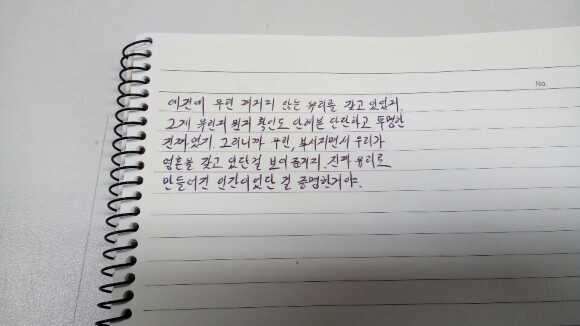 No.
예전에 우린 깨지지 않는 유리를 갖고 있었지.
그게 무언지 뭔지 확인도 안해본 단단하고 투명한
진짜였지. 그러니까 우린, 부서지면서 우리가
영혼을 갖고 있단걸 보여준거지. 진짜 유리로
만들어진 인간이었단 걸 증명한거야.